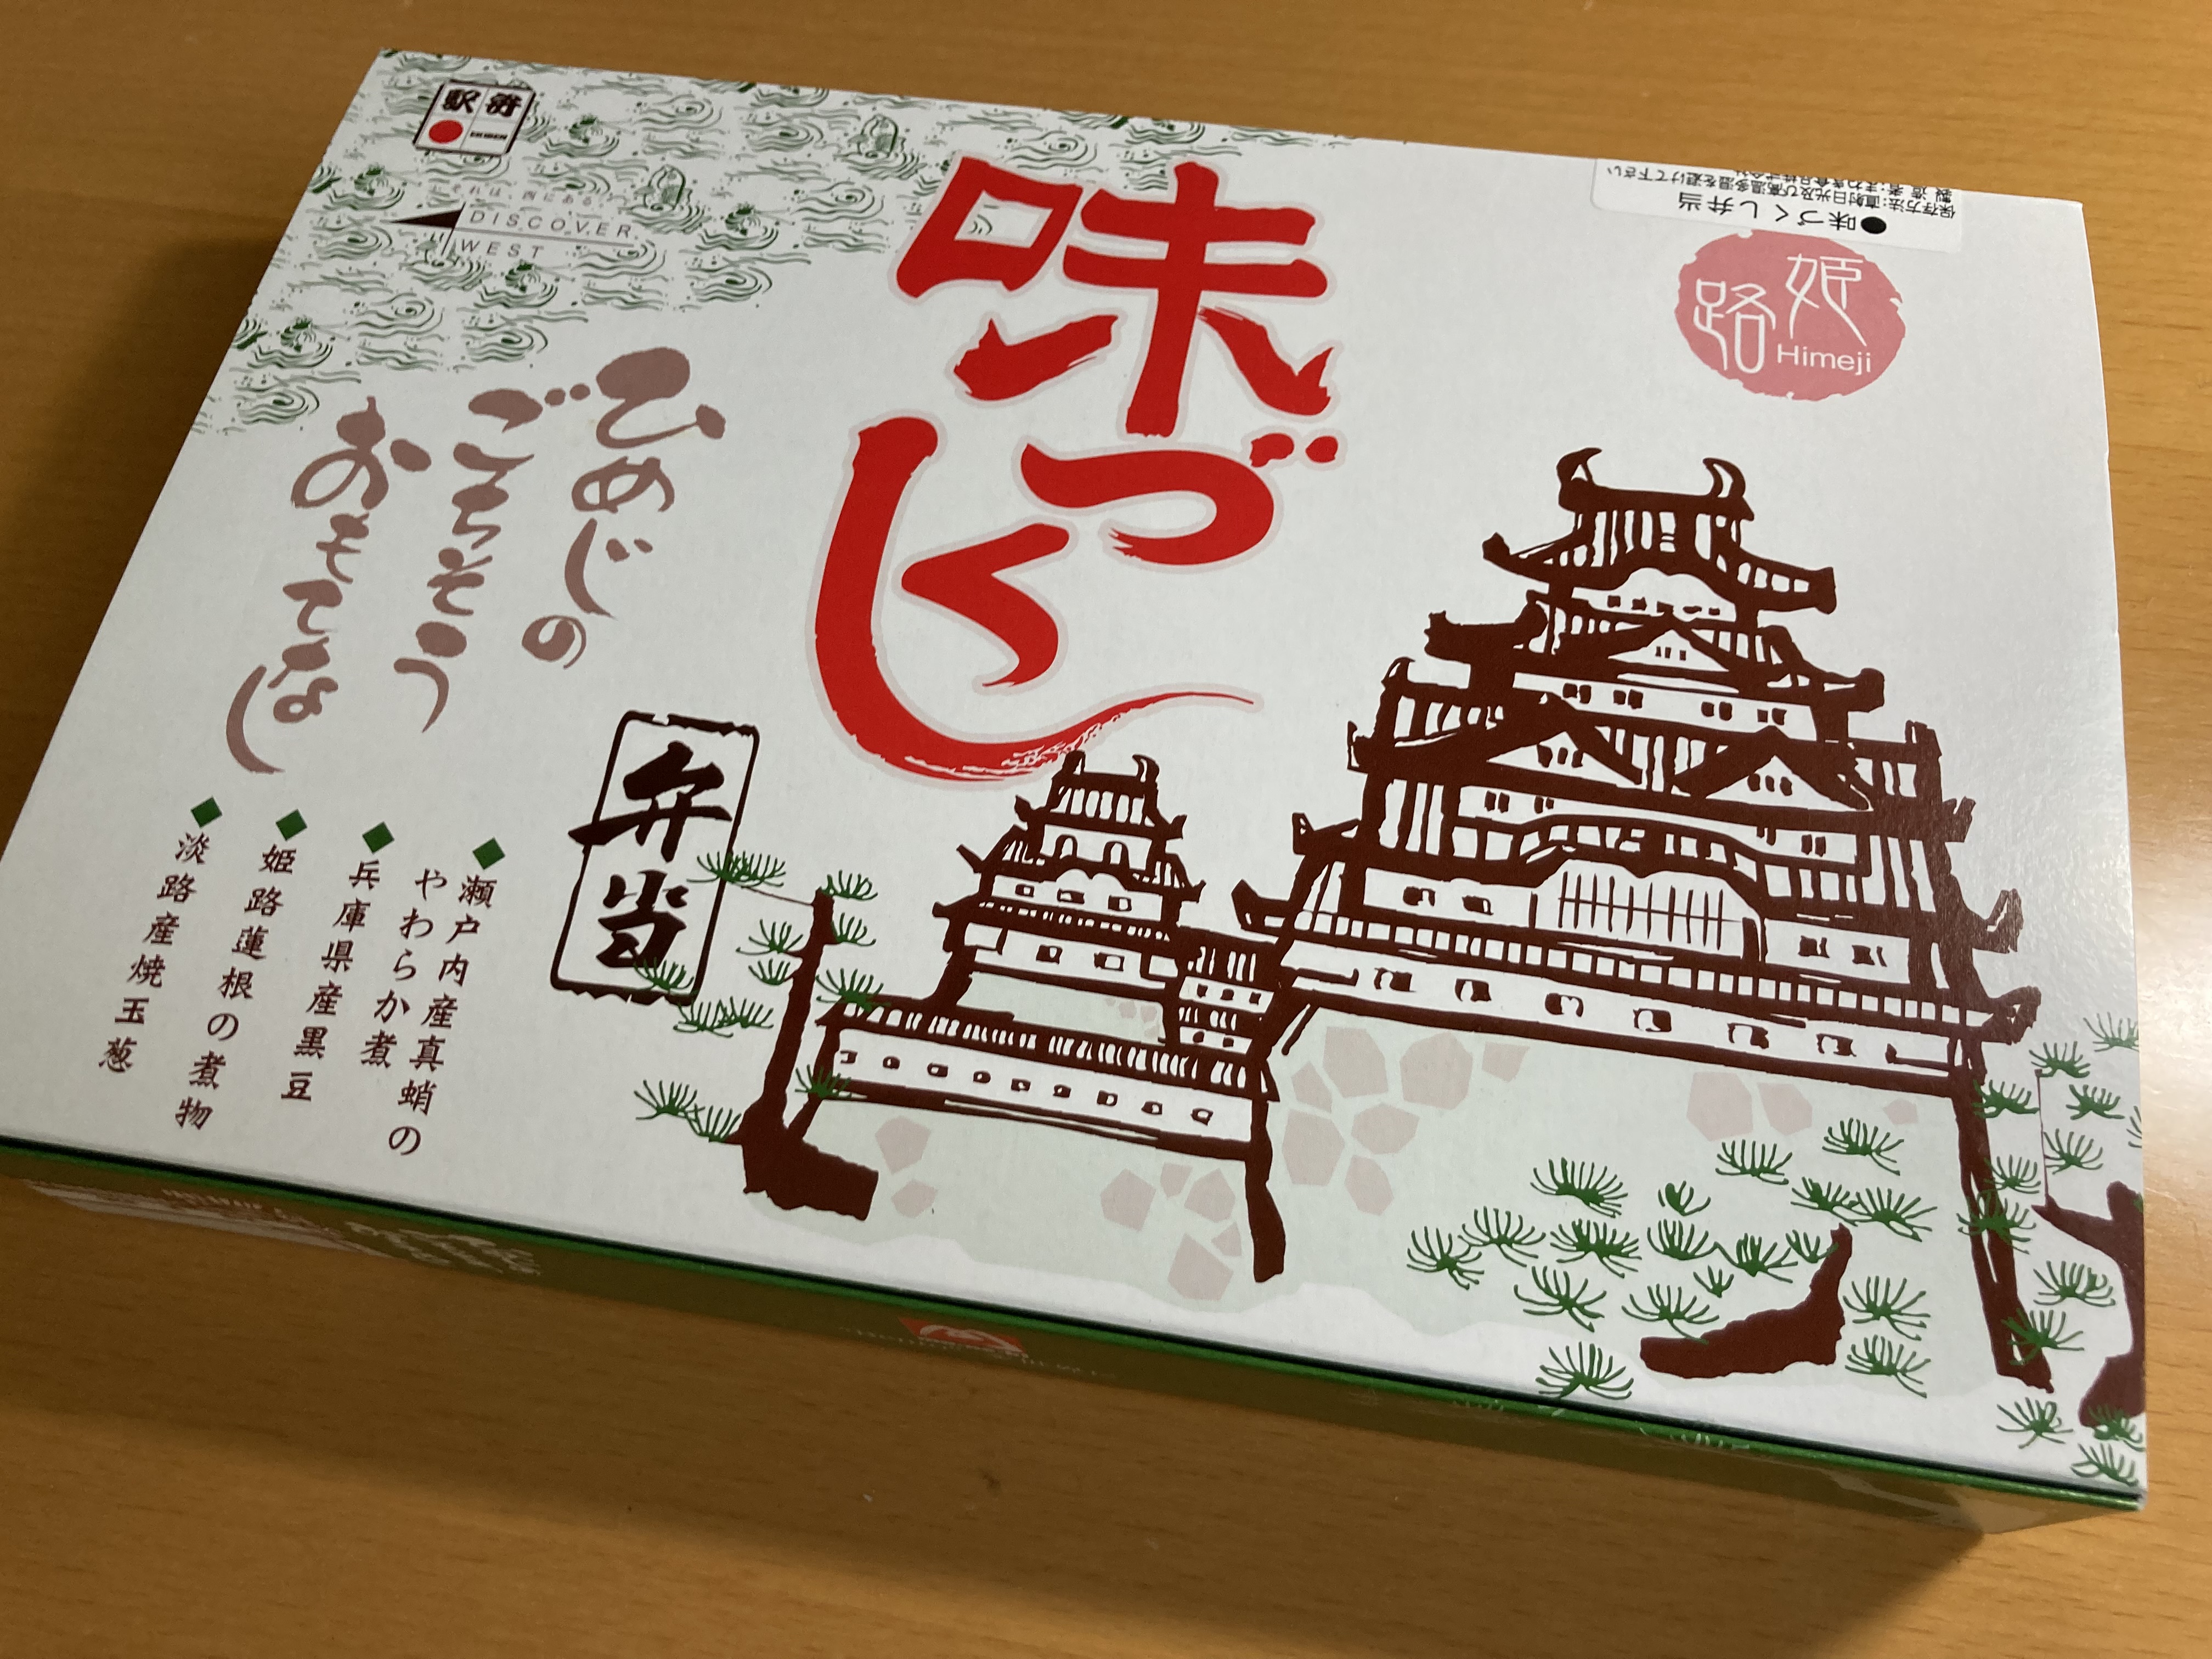 駅弁
EKIBEN
それは、西にある。
DISCOVER
WEST
味づくし
弁当
ひめじの
ごちそう
おもてなし
瀬戸内産真蛸の
やわらか煮
兵庫県産黒豆
姫路蓮根の煮物
淡路産焼玉葱
姫路
Himeji
●味づくし弁当
保存方法:直射日光及び高温多湿を避けて下さい
製造者:まねき食品株式会社